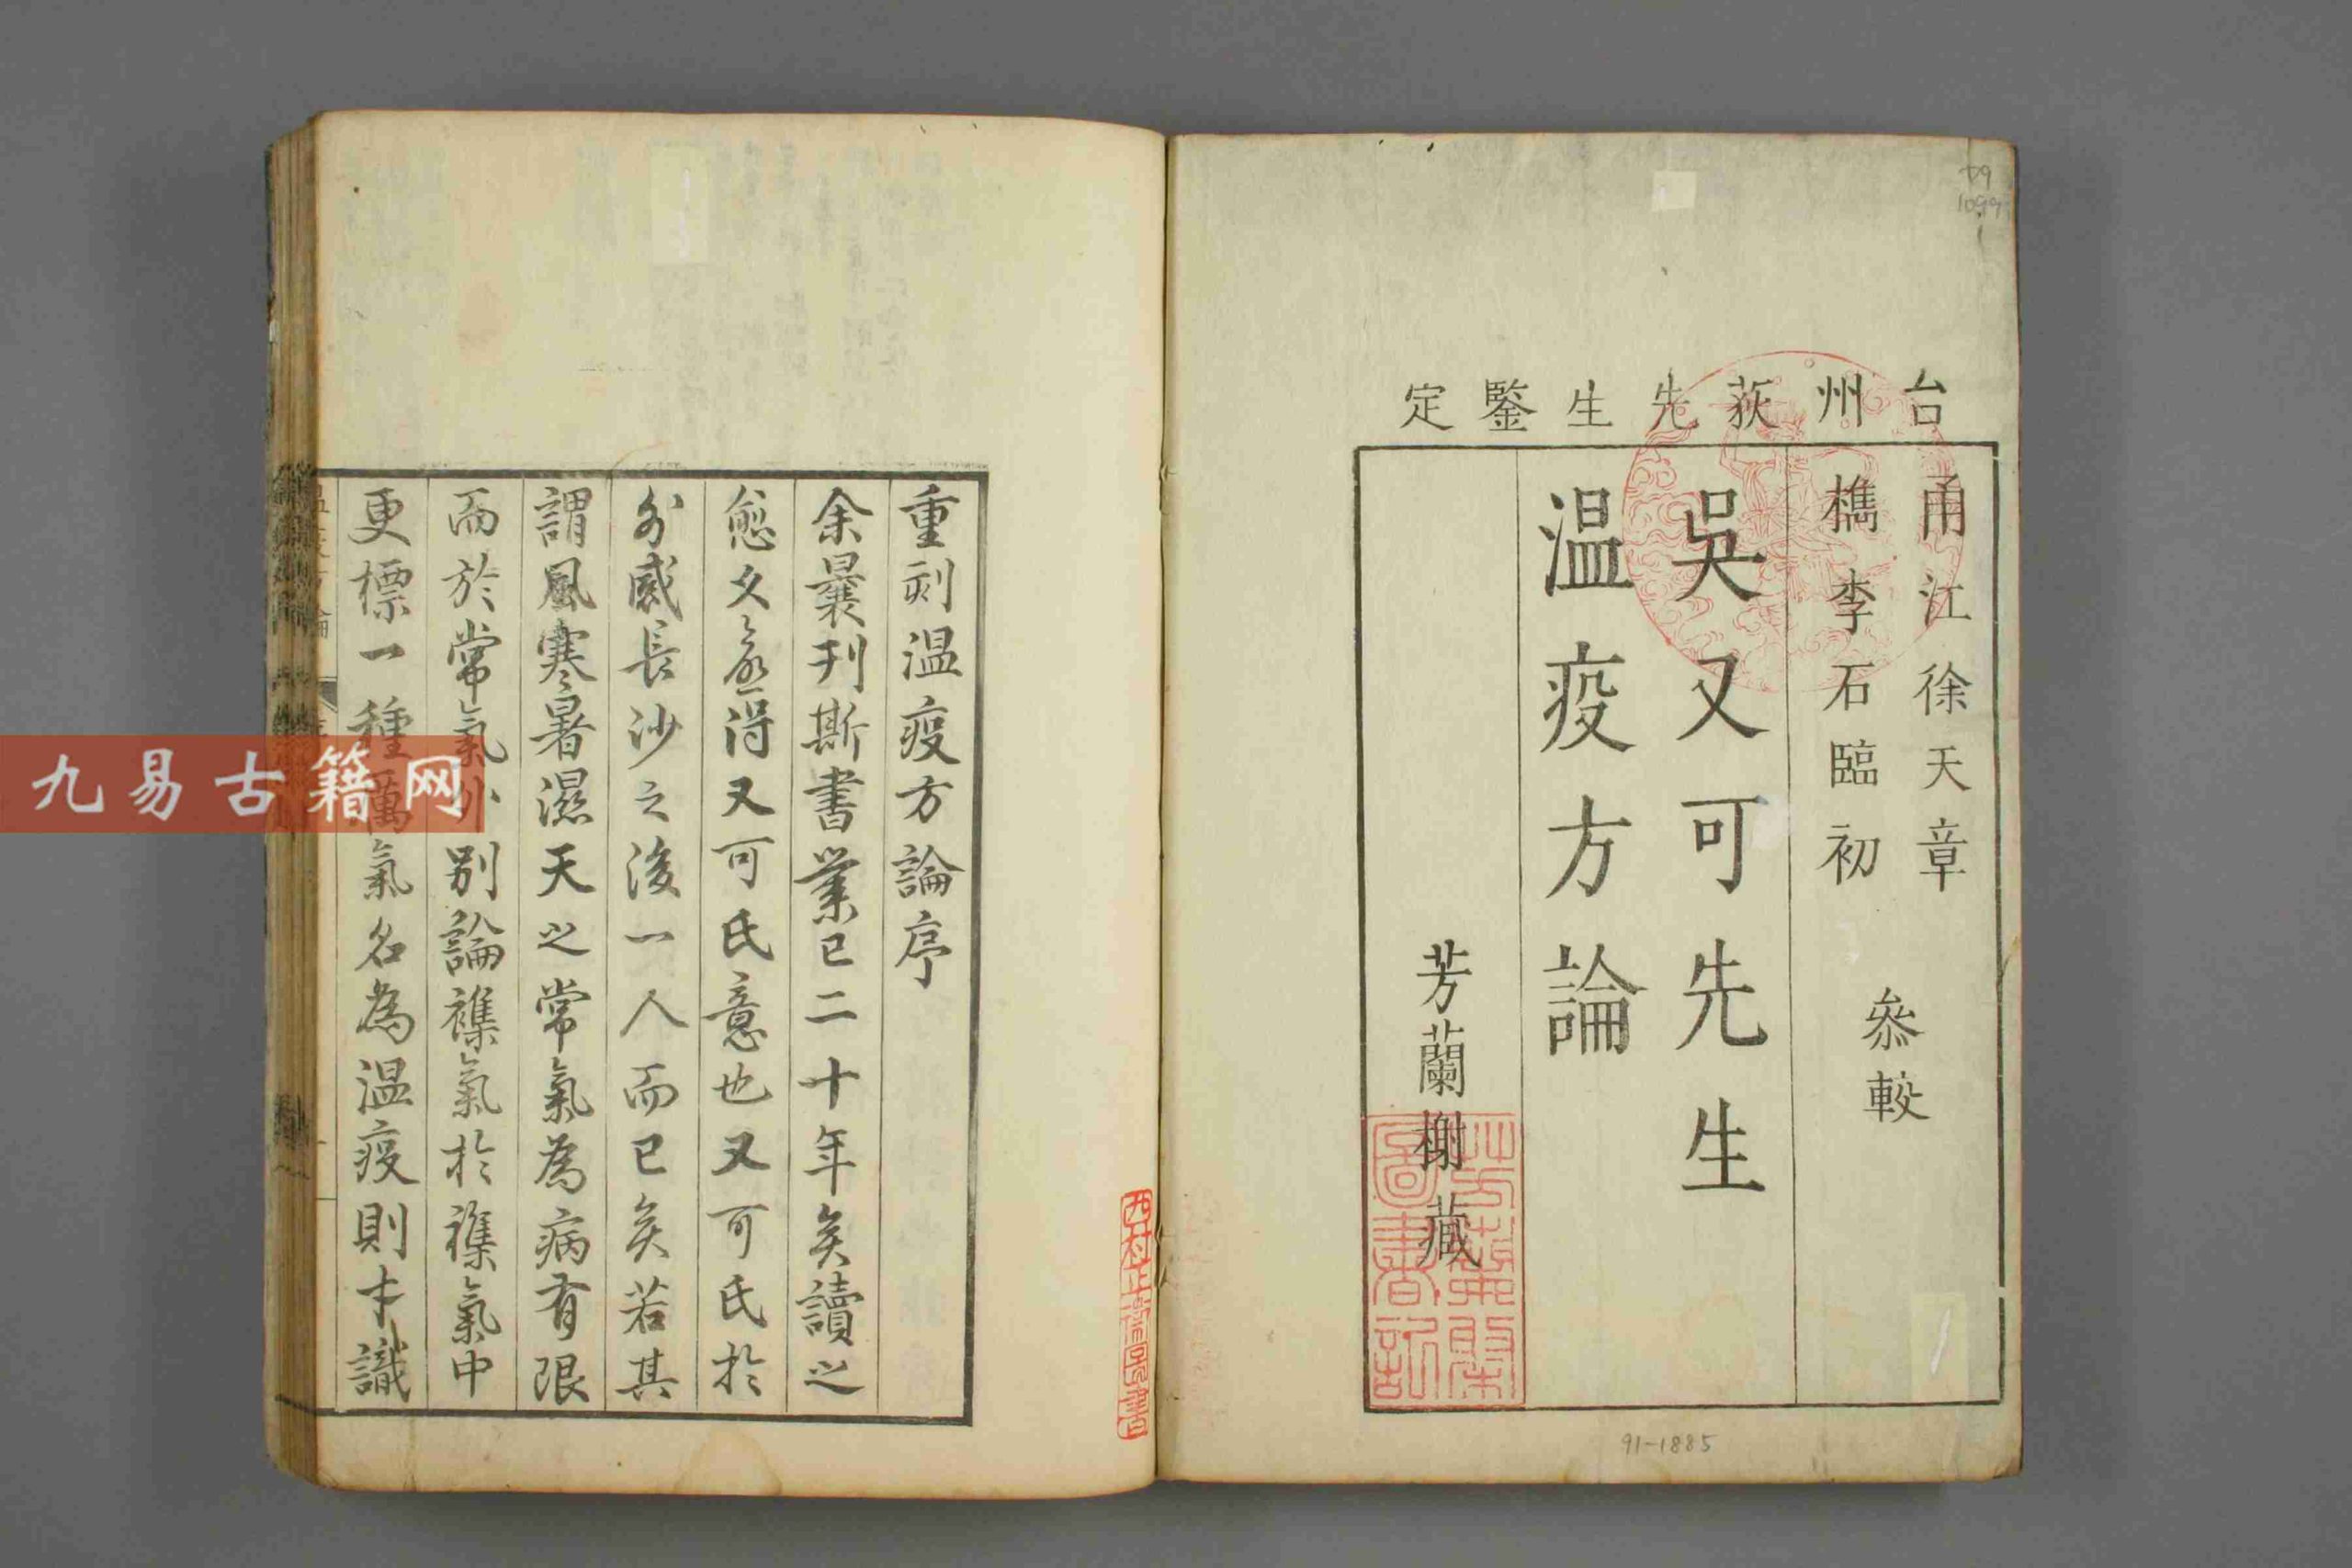 台州荻先生鑒定
甬江徐天章
檇李石臨初
叅較
吳又可先生
温疫方論
芳蘭榭藏
91-1885
重刻温疫方論序
余曩刋斯書業已二十年矣讀之
愈久愈得又可氏意也又可氏於
外感長沙之後一人而已矣若其
謂風寒暑濕天之常氣為病有限
而於常氣外別論襍氣於襍氣中
更標一種厲氣名為温疫則才識
九易古籍网